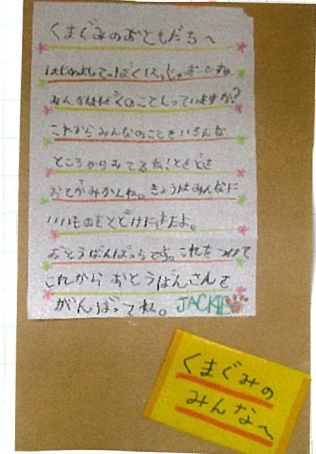 くまぐみのおともだちへ
はじめまして。ぼくは、じゃっきーです。
みんなはぼくのことしっていますか?
これからみんなのことをいろんな
ところからみてるね!ときどき
おてがみかくね。きょうはみんなに
いいものをとどけにきたよ。
おとうばんばっちです。これをつけて
これからおとうばんさんを
がんばってね。JACKIE
くまぐみの
みんなへ